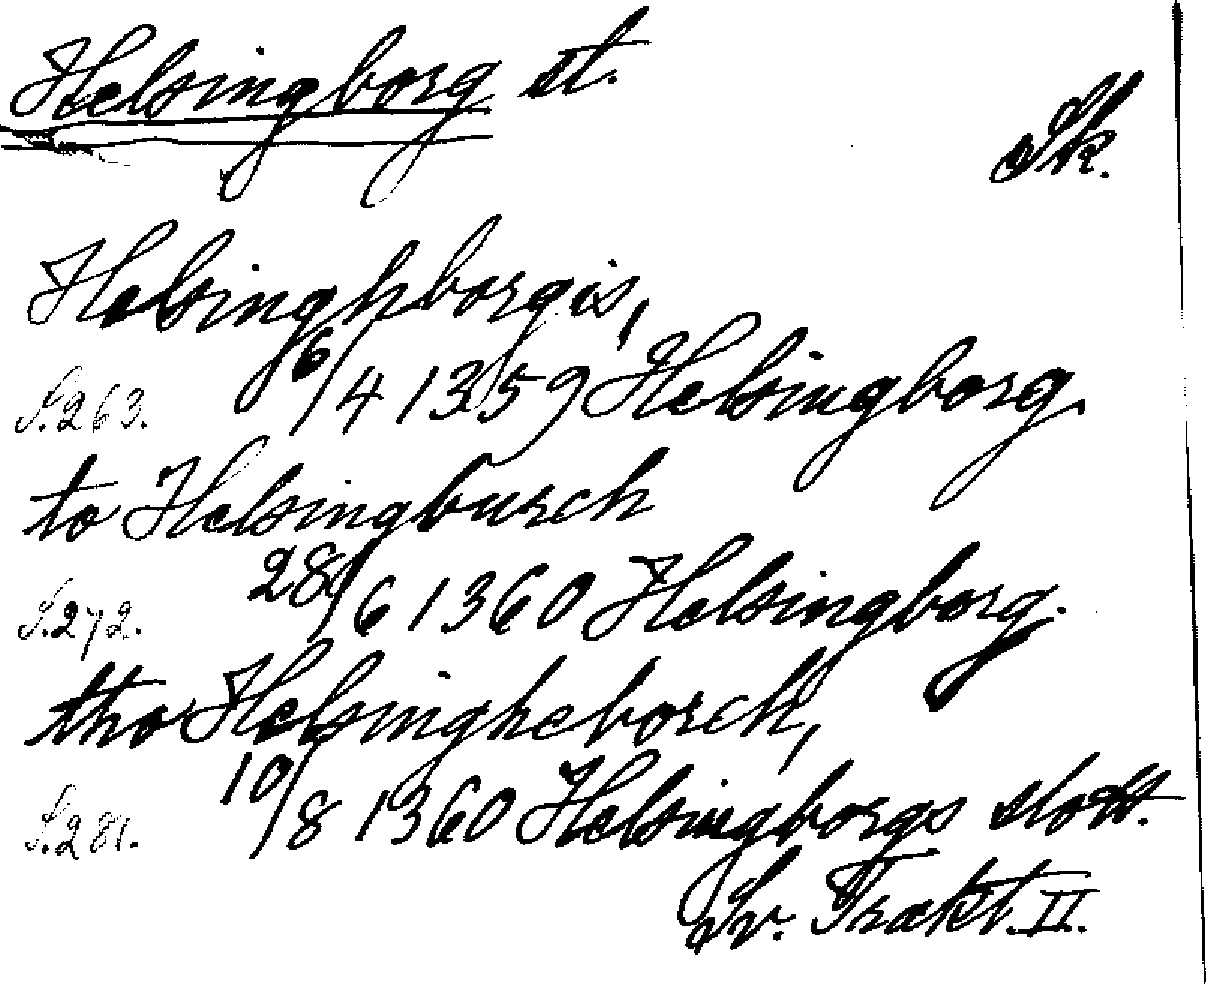 Helsingborg st.
Sk.
Helsinghborgis,
S.263. 6/4 1359 Helsingborg.
to Helsingburch
S.272. 28/6 1360 Helsingborg.
tho Helsingheborch,
S.281. 10/8 1360 Helsingborgs slott.
Sv. Trakt. II.